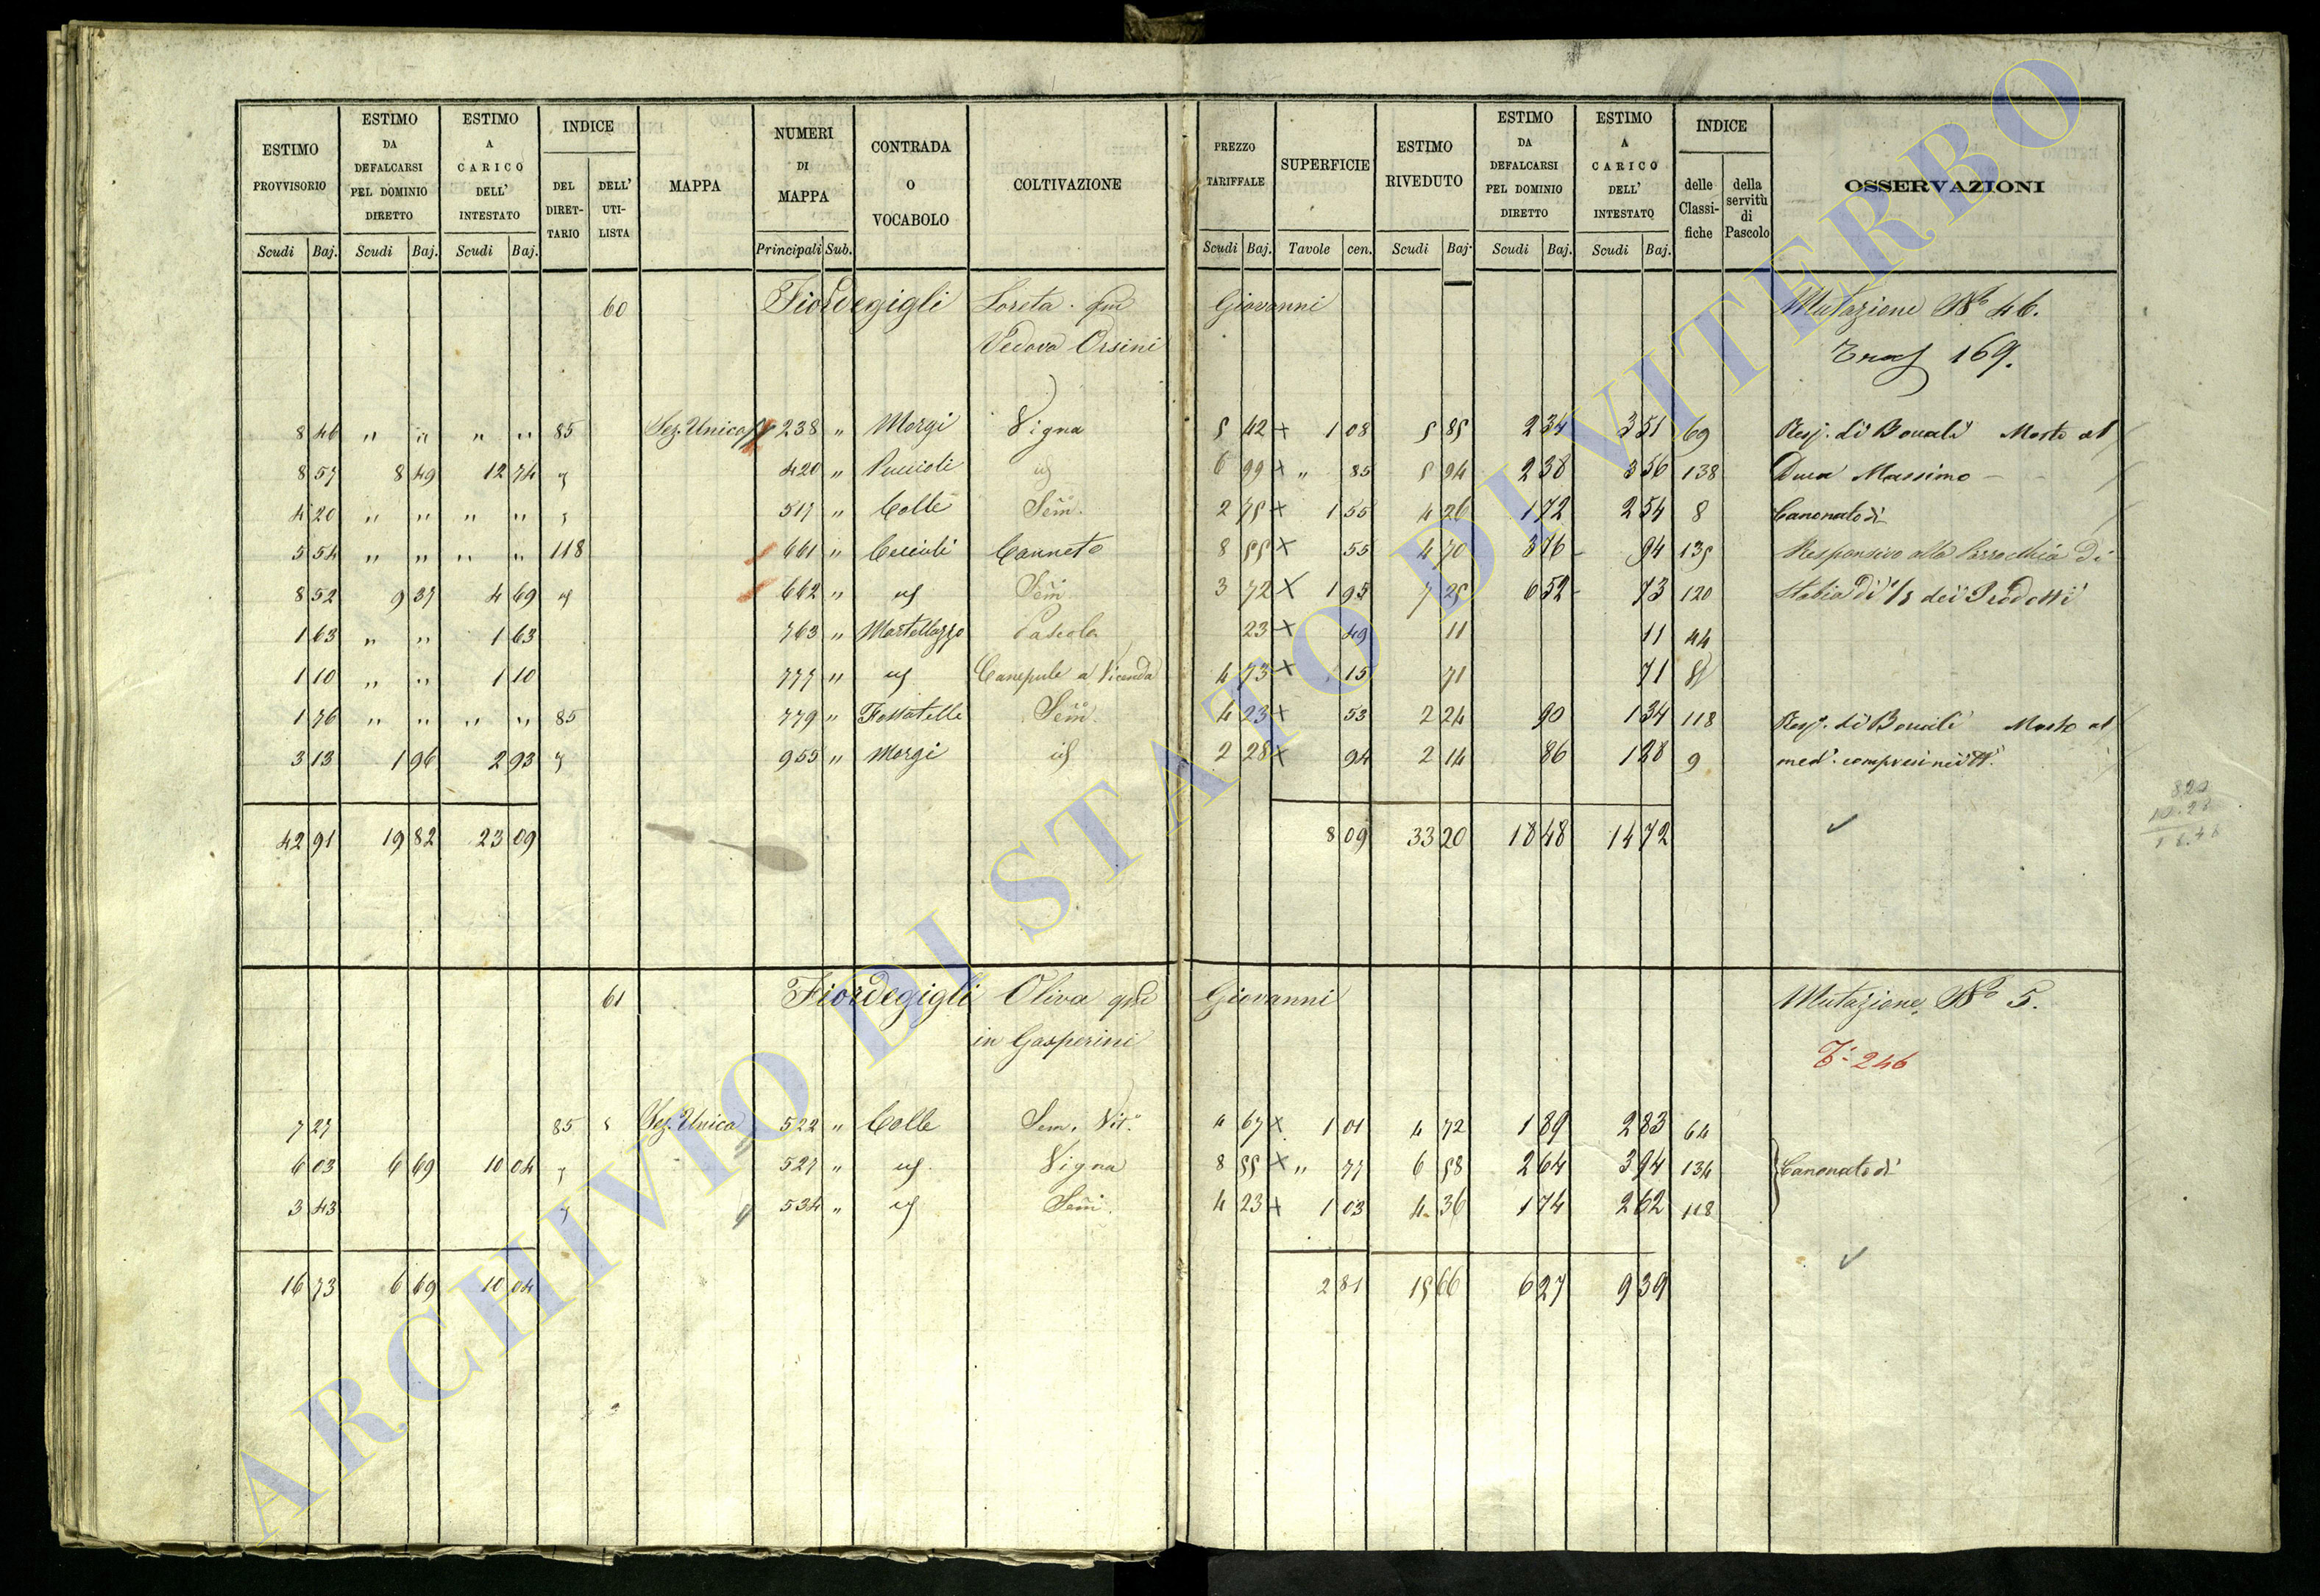 ESTIMO PROVVISORIO | ESTIMO DA DEFALCARSI PEL DOMINIO DIRETTO | ESTIMO A CARICO DELL' INTESTATO | INDICE | MAPPA | NUMERI DI MAPPA | CONTRADA O VOCABOLO | COLTIVAZIONE | PREZZO TARIFFALE | SUPERFICIE | ESTIMO RIVEDUTO | ESTIMO DA DEFALCARSI PEL DOMINIO DIRETTO | ESTIMO A CARICO DELL' INTESTATO | INDICE | OSSERVAZIONI
DEL DIRET-TARIO | DELL' UTI-LISTA | delle Classi-fiche | della servitù di Pascolo
Scudi Baj. | Scudi Baj. | Scudi Baj. | Principali Sub. | Scudi Baj. | Tavole cen. | Scudi Baj. | Scudi Baj. | Scudi Baj.
60 Fiordegigli Loreta Giovanni Mutazione No 46.
Vedova Orsini 169.
8 46 " " " " 85 Sez. Unica 238 " Morgi Vigna 5 42 × 1 08 5 85 2 34 3 51 69 Resp. di Bocali Mosto al
8 57 8 49 12 74 420 " 6 99 × " 85 5 94 2 38 3 56 138 Duca Massimo
4 20 " " " " 517 " Colle Sem. 2 75 × 1 55 4 26 1 72 2 54 8 Canonato di
5 54 " " " " 118 661 " Canneto 8 55 × 55 4 70 3 76 94 135 Responsivo alla Parrocchia di
8 52 9 37 4 69 662 " Sem 3 72 × 1 95 7 25 6 52 73 120 Stabia di
1 63 " " 1 63 763 " Martellazzo Pascolo 23 × 49 11 11 44
1 10 " " 1 10 777 " Canepule a Vicenda 4 73 × 15 71 71
1 76 " " " " 85 779 " Fossatelli Sem. 4 23 × 53 2 24 90 1 34 118 Resp. di Bocali Mosto al
3 13 1 96 2 93 955 " Morgi 2 28 × 94 2 14 86 1 28 9
42 91 19 82 23 09 8 09 33 20 18 48 14 72
61 Fiordegigli Oliva Giovanni Mutazione No 5.
in Gasperini
246
7 27 85 Sez. Unica 522 " Colle Sem. Vit. 4 67 × 1 01 4 72 1 89 2 83 64
6 03 6 69 10 04 527 " Vigna 8 55 × " 77 6 58 2 64 3 94 134 Canonato di
3 43 534 " Sem. 4 23 × 1 03 4 36 1 74 2 62 118
16 73 6 69 10 04 2 81 15 66 6 27 9 39
ARCHIVIO DI STATO DI VITERBO